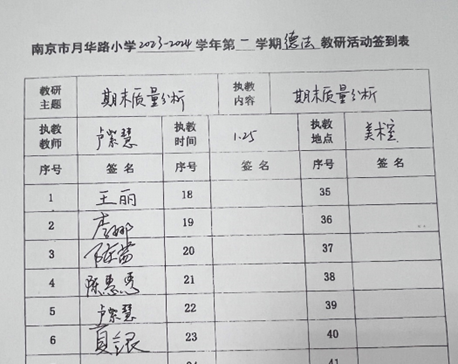 南京市月华路小学2023-2024学年第一学期德法教研活动签到表
教研主题 期末质量分析 执教内容 期末质量分析
执教教师 卢紫慧 执教时间 1.25 执教地点 美术室
序号 签名 序号 签名 序号 签名
1 王丽 18 35
2 李娜 19 36
3 20 37
4 陈惠秀 21 38
5 卢紫慧 22 39
6 23 40
41